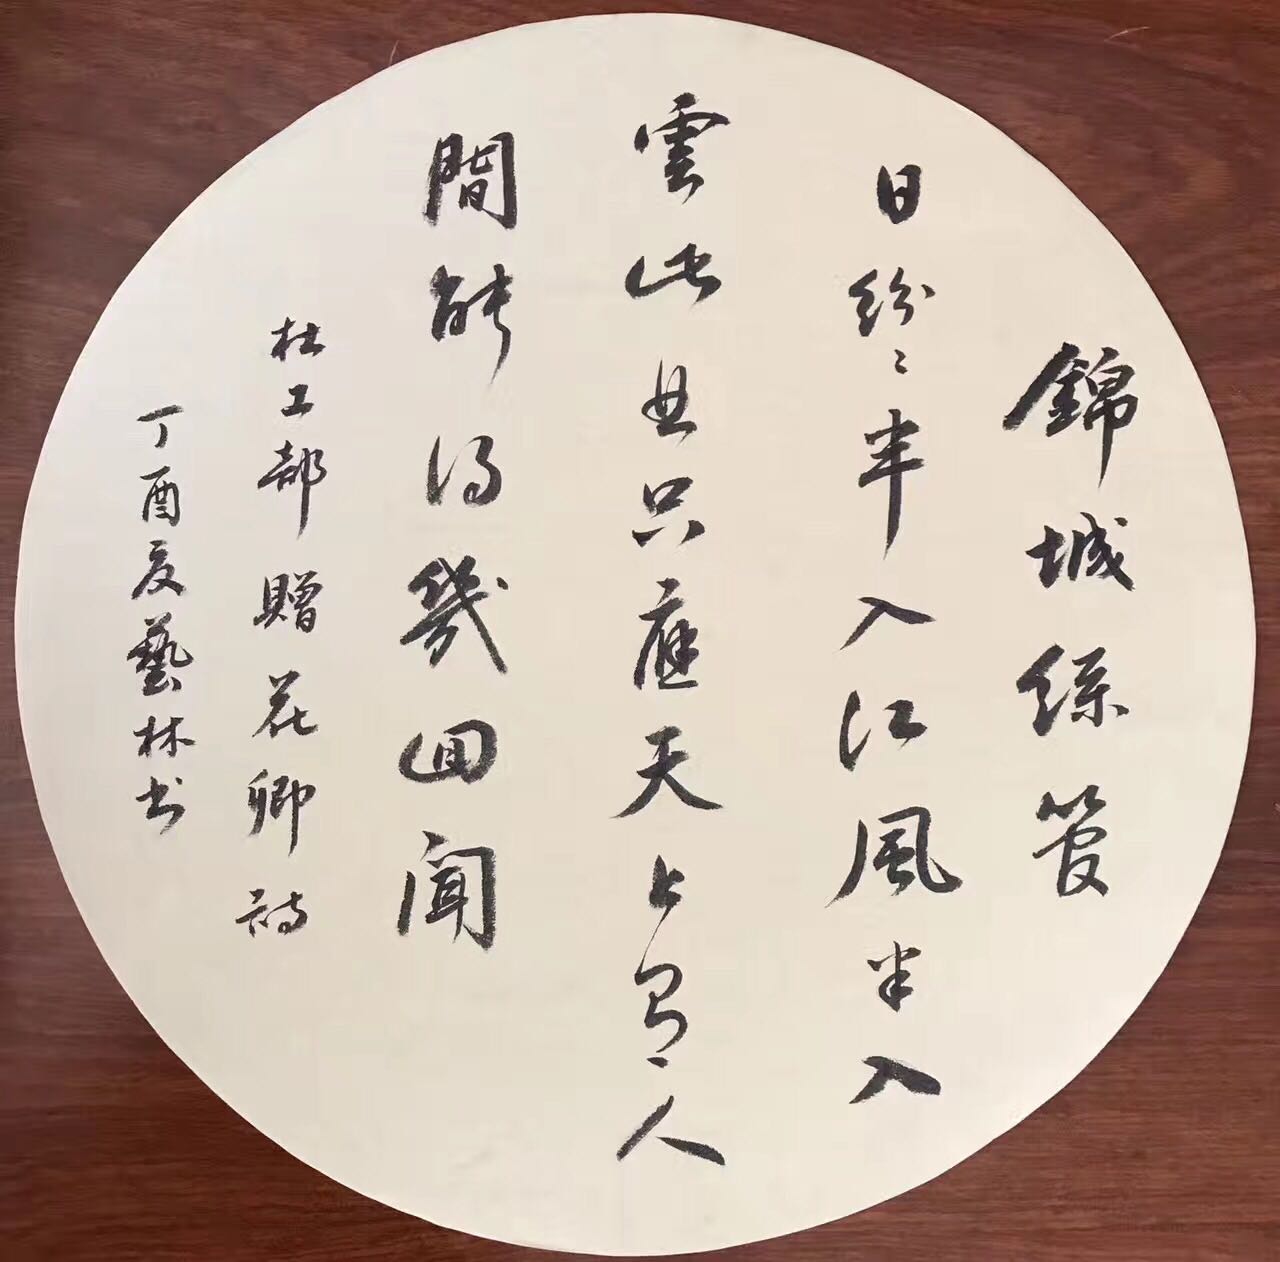 錦城絲管
日紛〻半入江風半入
雲此曲只應天上有人
間能得幾回聞
杜工部贈花卿詩
丁酉夏藝林书